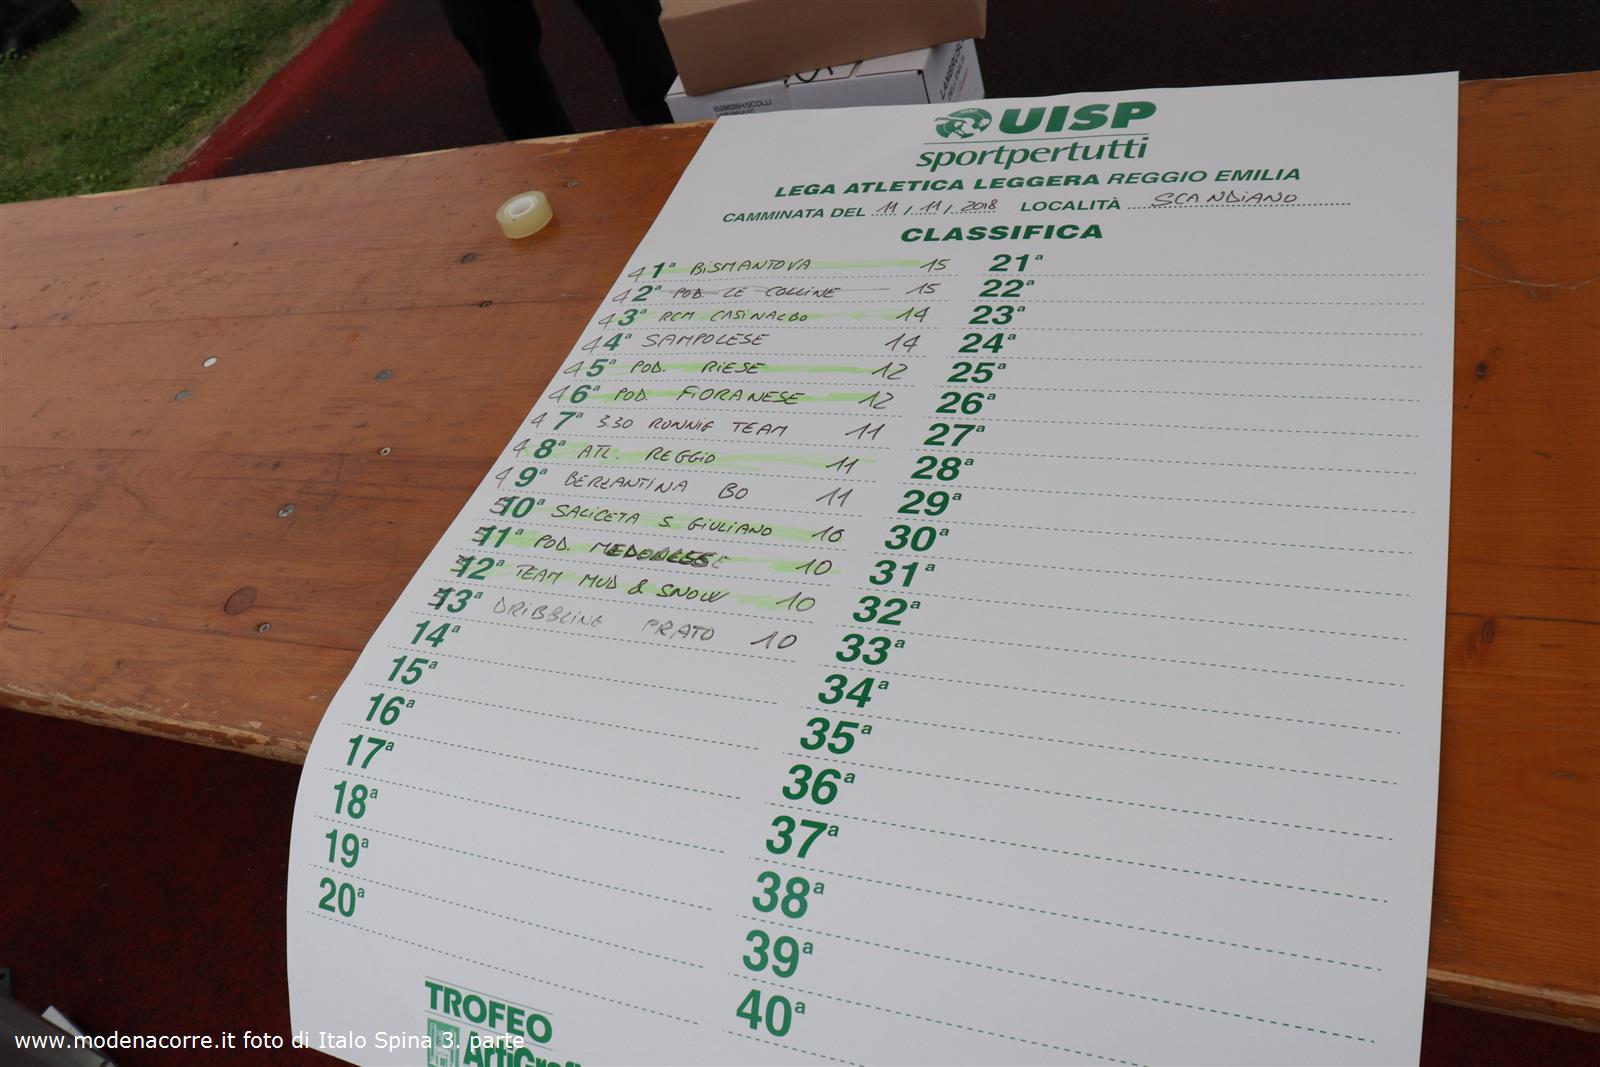 LAMBRUSCO
DELL'EMILIA
UISP
sportpertutti
LEGA ATLETICA LEGGERA REGGIO EMILIA
CAMMINATA DEL 11/11/2018 LOCALITÀ SCANDIANO
CLASSIFICA
4 1ª BISMANTOVA 15
4 2ª POD. LE COLLINE 15
4 3ª RCM CASINALBO 14
4 4ª SAMPOLESE 14
4 5ª POD. RIESE 12
4 6ª POD. FIORANESE 12
4 7ª 3.30 RUNNIG TEAM 11
4 8ª ATL. REGGIO 11
4 9ª BERZANTINA BO 11
10ª SALICETA S. GIULIANO 10
11ª POD. 10
12ª TEAM MUD & SNOW 10
13ª DRIBBLING PRATO 10
14ª
15ª
16ª
17ª
18ª
19ª
20ª
21ª
22ª
23ª
24ª
25ª
26ª
27ª
28ª
29ª
30ª
31ª
32ª
33ª
34ª
35ª
36ª
37ª
38ª
39ª
40ª
TROFEO
www.modenacorre.it foto di Italo Spina 3. parte